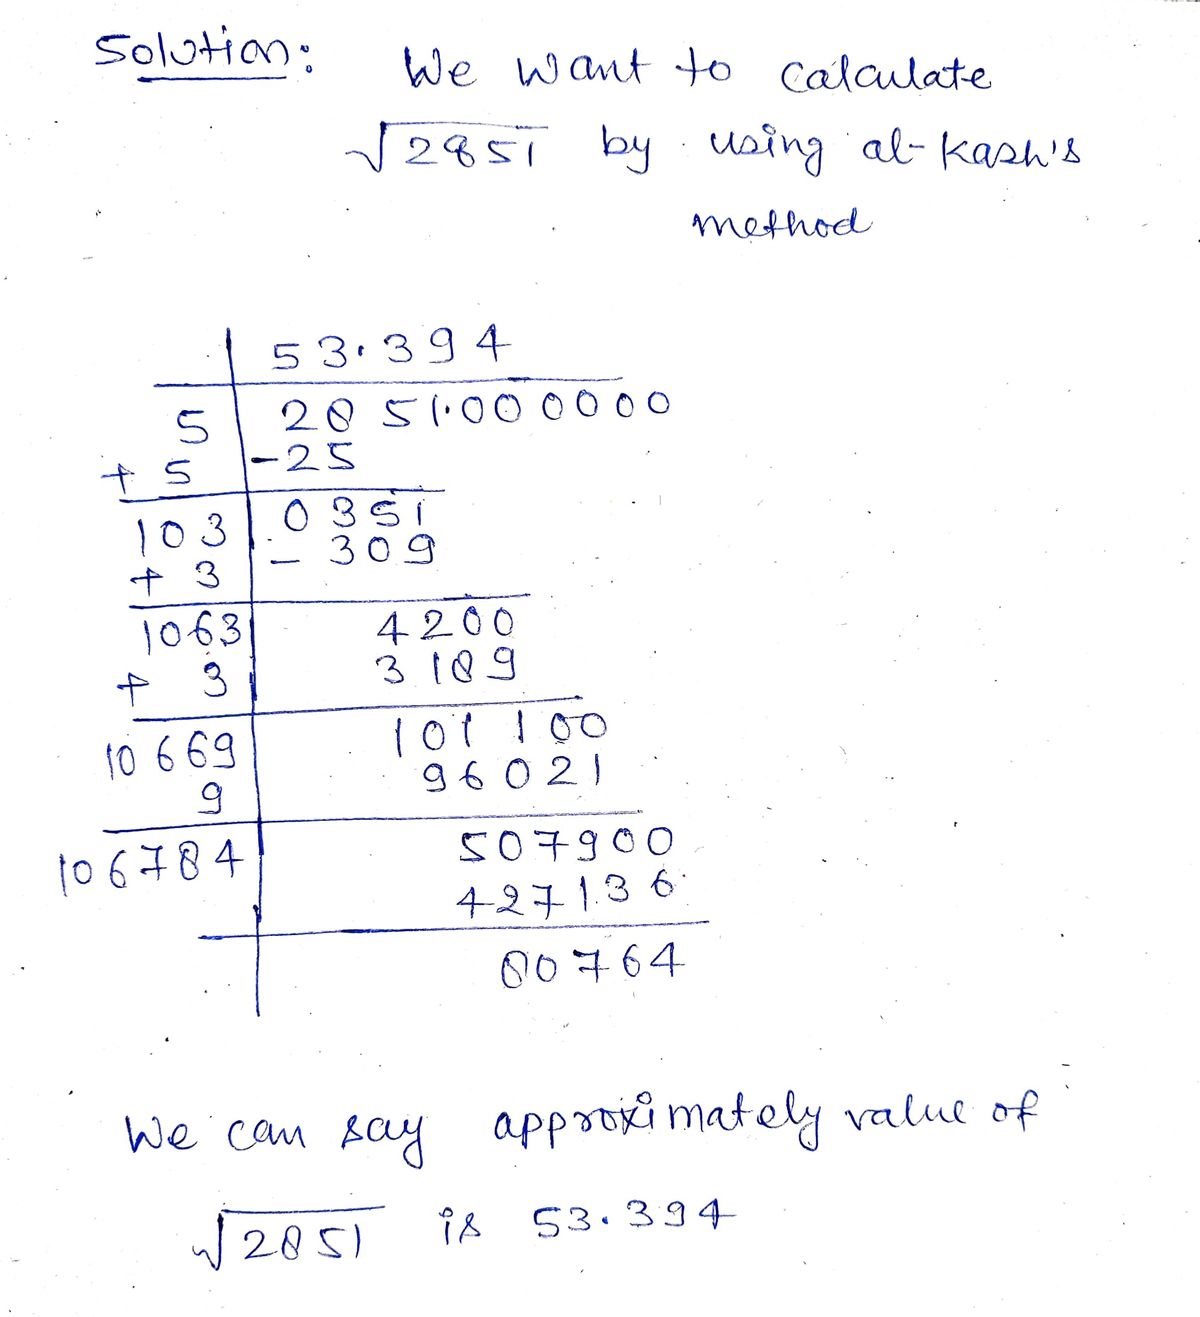 Solution: We want to calculate
√2851 by using al-Kash's
method
53.394
5 2851.000000
+ 5 -25
103 0351
+ 3 - 309
1063 4200
+ 3 3189
10669 101100
9 96021
106784 507900
427136
80764
We can say approximately value of
√2851 is 53.394